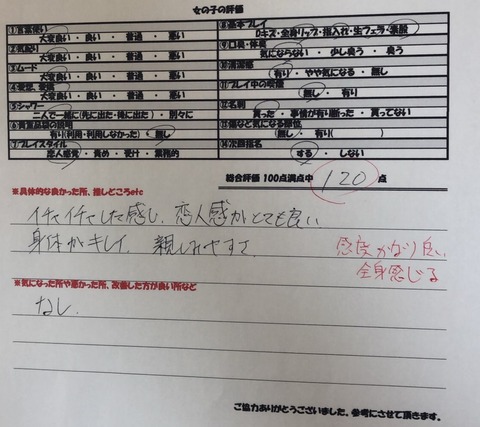 女の子の評価
①言葉使い
大変良い ・ 良い ・ 普通 ・ 悪い
②気配り
大変良い ・ 良い ・ 普通 ・ 悪い
③ムード
大変良い ・ 良い ・ 普通 ・ 悪い
大変良い ・ 良い ・ 普通 ・ 悪い
⑤シャワー
二人で一緒に(先に出た・後に出た) ・ 別々に
有り(利用・利用しなかった) ・ 無し
⑦プレイスタイル
恋人感覚 ・ 責め ・ 受け ・ 業務的
⑧基本プレイ
Dキス・全身リップ・指入れ・生フェラ・素股
⑨口臭・体臭
気にならない ・ 少し臭う ・ 臭う
⑩清潔感
有り ・ やや気になる ・ 無し
⑪プレイ中の喫煙
無し ・ 有り
⑫名刺
貰った ・ 事情が有り断った ・ 貰ってない
無し ・ 有り( )
⑭次回指名
する ・ しない
総合評価 100点満点中 120 点
※具体的な良かった所、推しどころetc
イチャイチャした感じ、恋人感がとても良い
身体がキレイ、親しみやすさ
感度かなり良い
全身感じる
※気になった所や悪かった所、改善した方が良い所など
なし
ご協力ありがとうございました、参考にさせて頂きます。